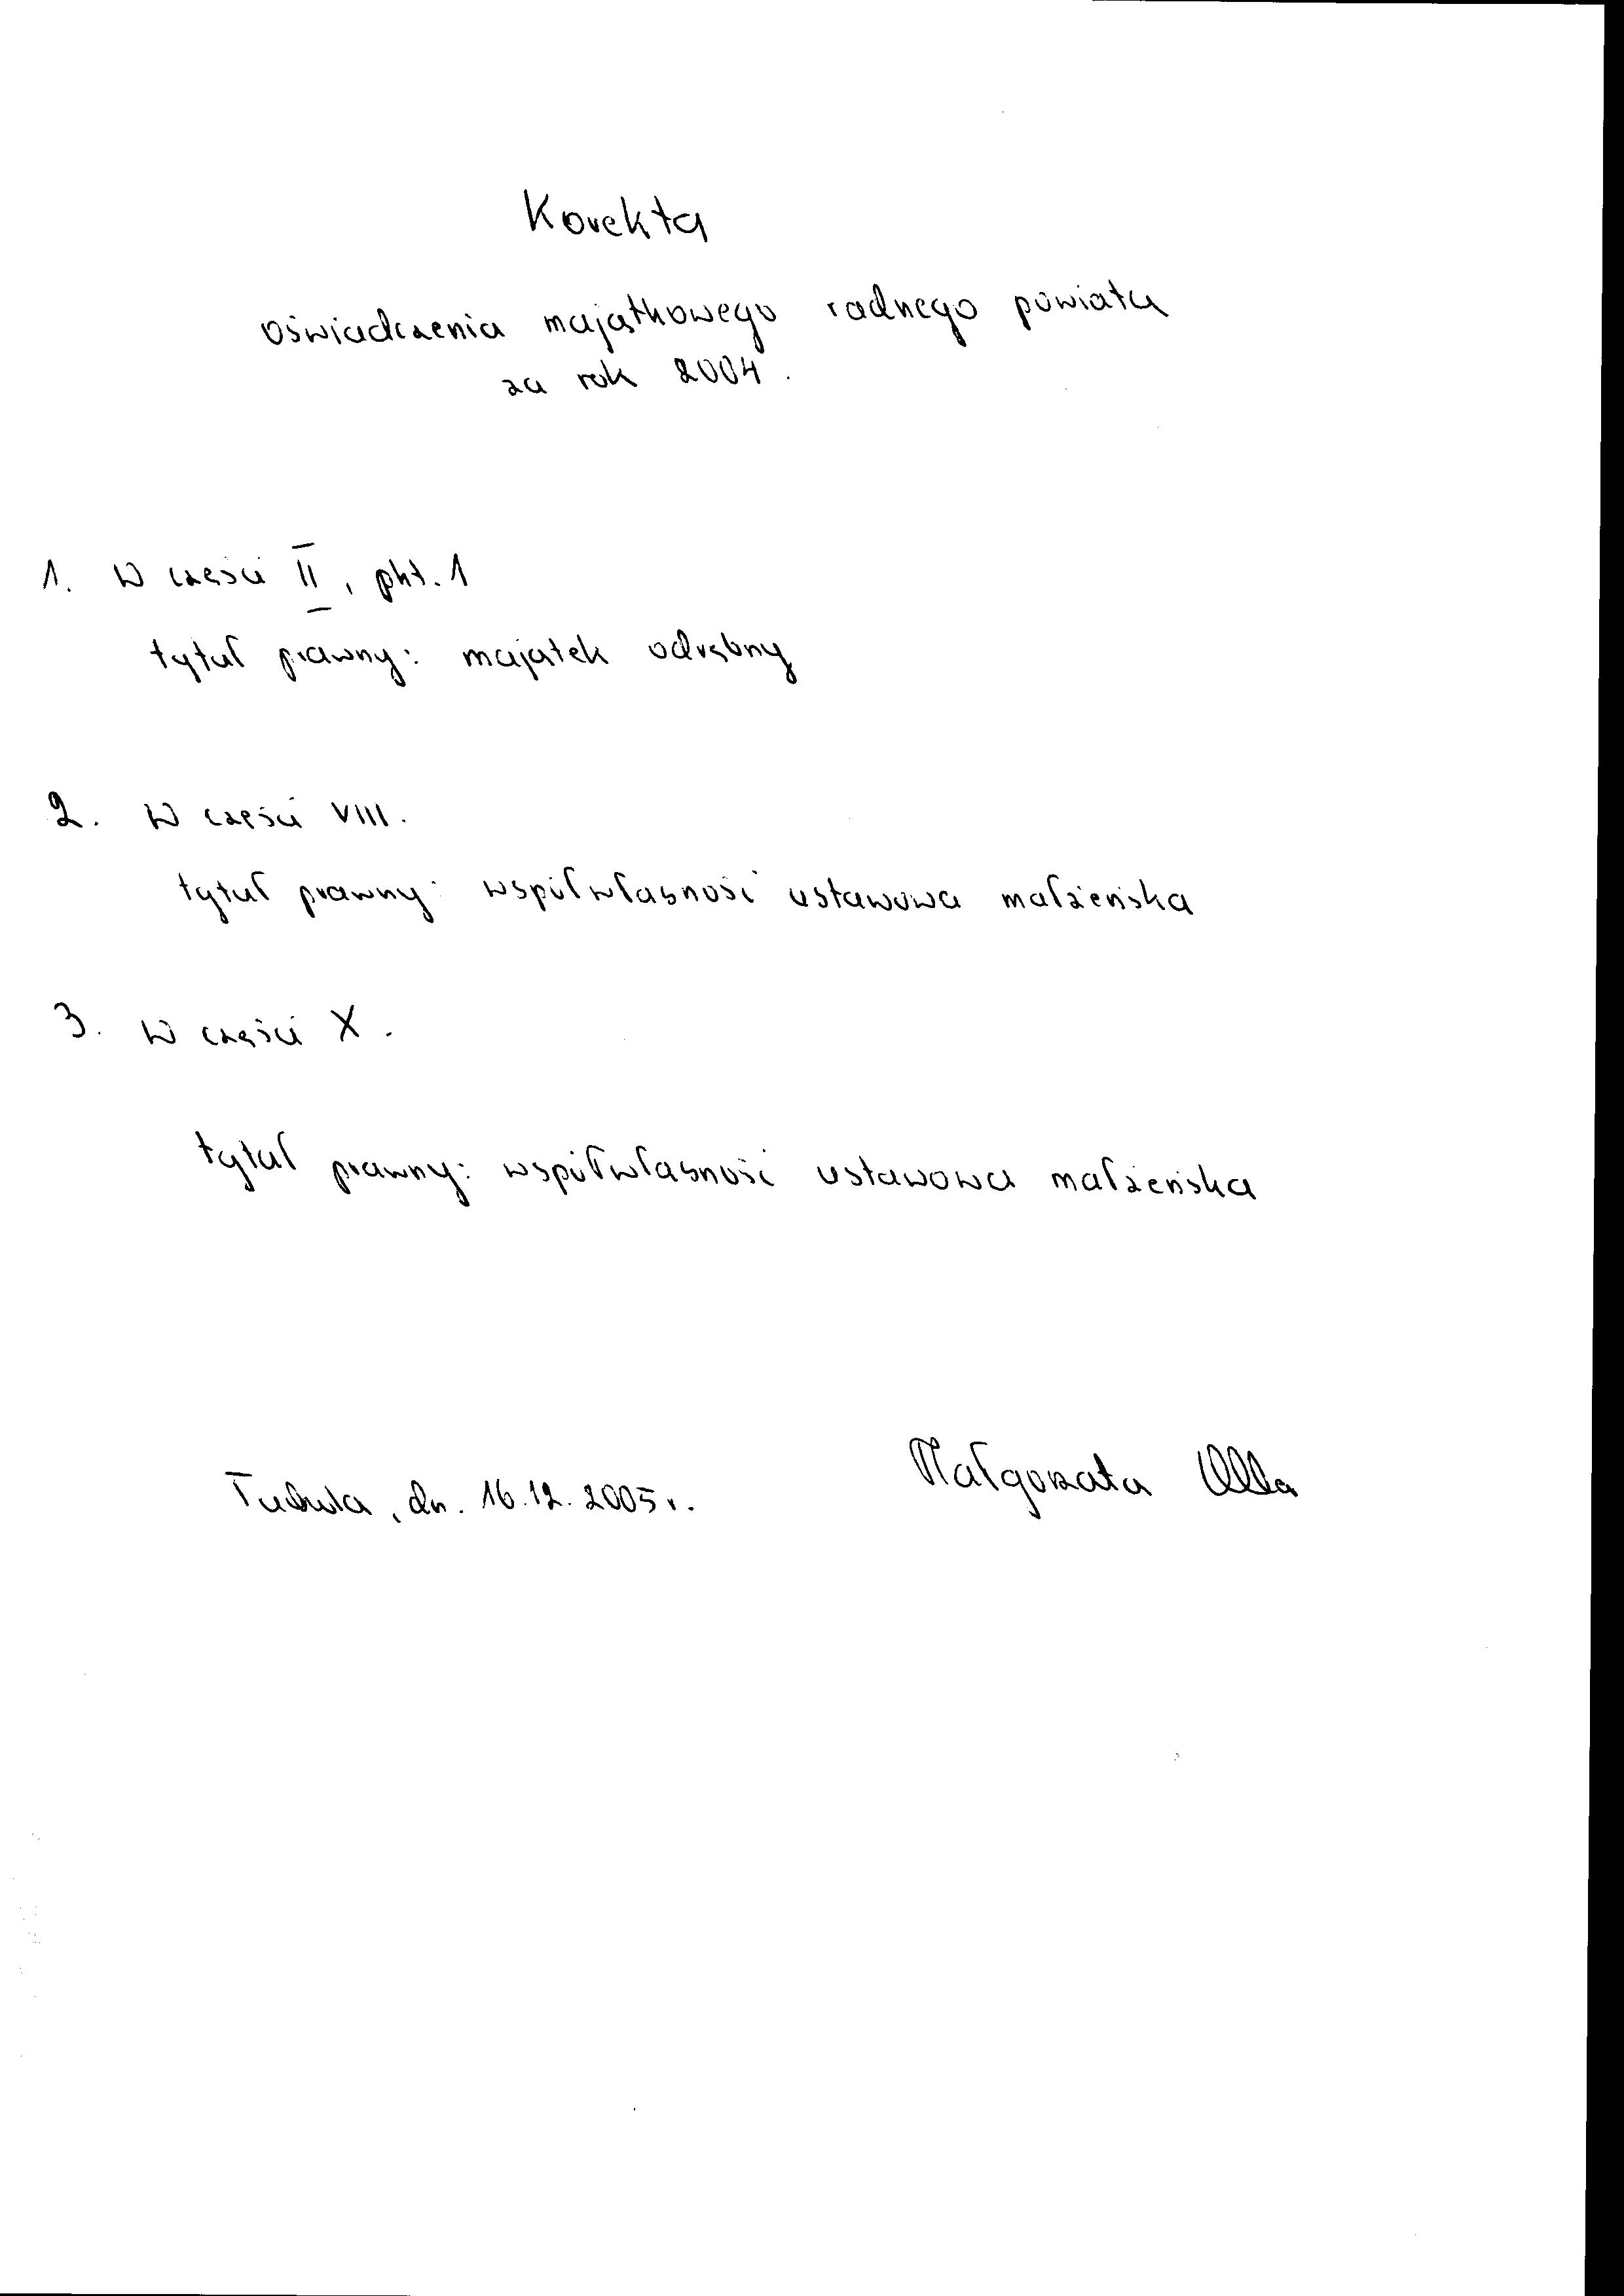 Korekta
oświadczenia majątkowego radnego powiatu
za rok 2004.
1. W części II, pkt. 1
tytuł prawny: majątek odrębny
2. W części VIII.
tytuł prawny: współwłasność ustawowa małżeńska
3. W części X.
tytuł prawny: współwłasność ustawowa małżeńska
Tuchola, dn. 16.12.2005 r.
Małgorzata